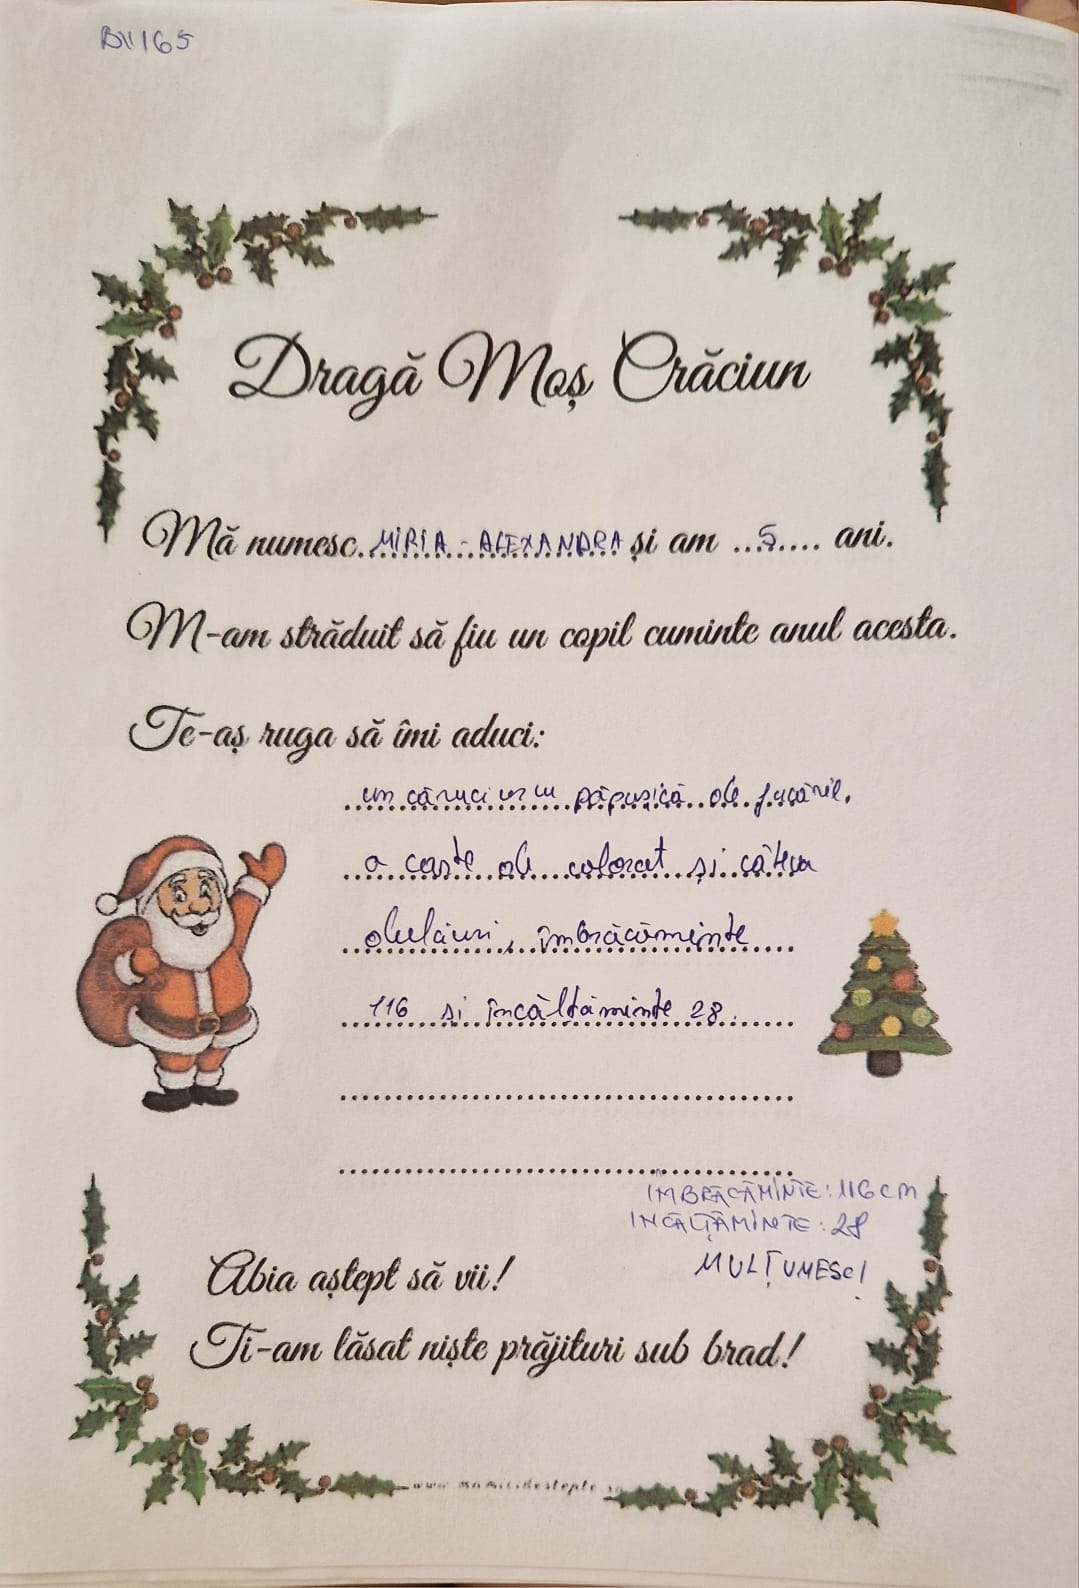 BV165
Dragă Moș Crăciun
Mă numesc MIRIA-ALEXANDRA și am 5 ani.
M-am străduit să fiu un copil cuminte anul acesta.
Te-aș ruga să îmi aduci:
un cărucior cu păpușică de jucărie,
o carte de colorat și câteva
dulciuri, îmbrăcăminte
116 și încălțăminte 28.
ÎMBRĂCĂMINTE: 116 cm
INCĂLȚĂMINTE: 28
MULȚUMESC!
Abia aștept să vii!
Ți-am lăsat niște prăjituri sub brad!